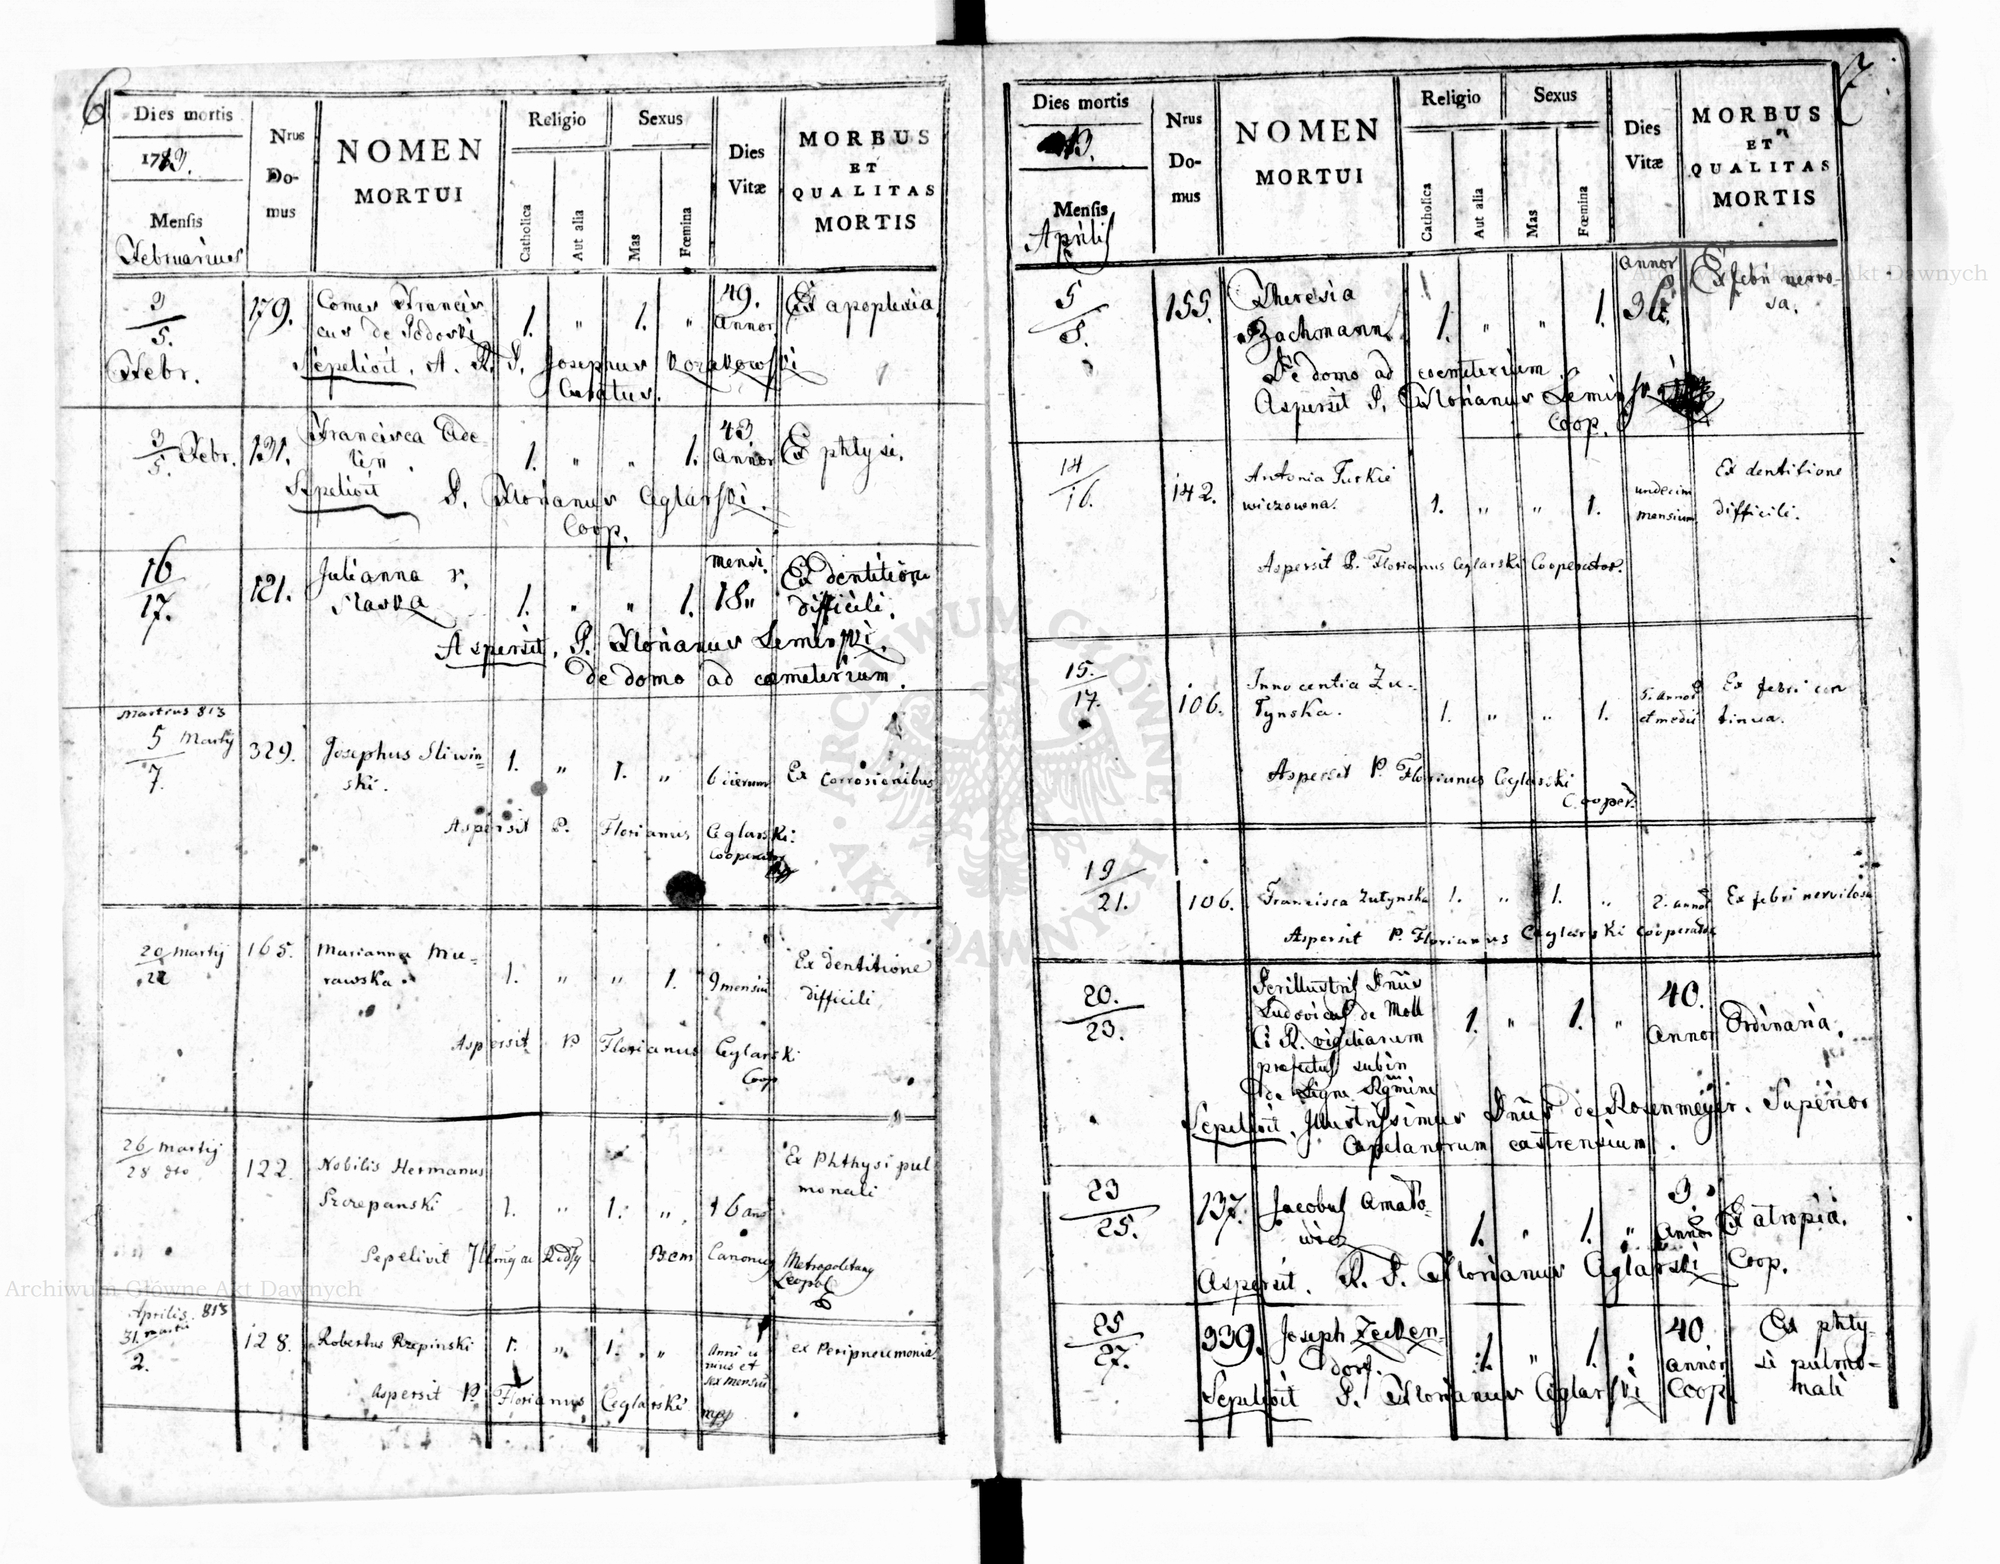 6
Dies mortis
1713.
Mensis
Februarius
Nrus
Do-
mus
NOMEN
MORTUI
Religio
Catholica
Aut alia
Sexus
Mas
Fœmina
Dies
Vitæ
MORBUS
ET
QUALITAS
MORTIS
3/5. Febr.
179.
Comes Francis
cus de
1. " 1. "
49.
Annor
Ex apoplexia.
Sepelivit. A. R. P. Josephus
Curatus.
3/5. Febr.
131.
Francisca
1. " " 1.
43.
Annor
Ex phtysi.
Sepelivit P. Florianus Ceglarski.
Coop.
16/17.
121.
Julianna
1. " " 1.
mensi.
18"
Ex dentitione
difficili.
Aspersit. P. Florianus
de domo ad cœmeterium.
Martius 813
5 Martij
7.
329.
Josephus Sliwin=
ski.
1. " 1. "
Ex Corrosionibus
Aspersit P. Florianus Ceglarski.
Cooperator
20 Martij
22
165.
Marianna Mu=
rawska.
1. " " 1.
9 mensiu
Ex dentitione
difficili
Aspersit P Florianus Ceglarski
Coop
26 Martij
28 dto
122.
Nobilis Hermanus
Szczepanski
1. " 1. "
16 an
Ex Phthysi pul
monali
Sepelivit Canonic Metropolitang
Leopol
Aprilis. 813
31. Martii
2.
128.
Robertus Rzepinski
1. " 1. "
Anni u
nius et
sex mensiu
ex Peripneumonia.
Aspersit P. Florianus Ceglarski
mpp
7
Dies mortis
13.
Mensis
Aprilis
Nrus
Do-
mus
NOMEN
MORTUI
Religio
Catholica
Aut alia
Sexus
Mas
Fœmina
Dies
Vitæ
MORBUS
ET
QUALITAS
MORTIS
155.
Theresia
Bachmann.
1. " " 1.
Annor
Ex febri nervo-
sa.
De domo ad coemeterium.
Aspersit P. Florianus
Coop.
14/16.
142.
Antonia Turkie
wiczowna.
1. " " 1.
undecim
mensium
Ex dentitione
difficili.
Aspersit P. Florianus Ceglarski Cooperator.
15./17.
106.
Innocentia Zu-
tynska.
1. " " 1.
5. annor
et medii
Ex febri con
tinua.
Aspersit P. Florianus Ceglarski
Cooper.
19/21.
106.
Francisca Zutynska
1. " 1. "
2. annor
Ex febri nervilosa
Aspersit P. Florianus Ceglarski Cooperator
20./23.
Perillustris Dnus
Ludovicus de Moll
C. R. vigiliarum
prefectus subin
1. " 1. "
40.
Annor
Ordinaria.
Sepelivit. Illustrissimus Dnus de Rosenmeyer. Superior
Capelanorum castrensium.
23/25.
137.
Jacobus Amato-
wicz
1. " 1. "
3.
Annor
Ex atropia.
Aspersit. R. P. Florianus Ceglarski Coop.
25/27.
339.
Joseph Zecken-
dorf.
1. " 1. "
40
Annor
Ex phty-
si pulmo-
nali
Sepelivit P. Florianus Ceglarski Coop
ARCHIWUM GŁÓWNE AKT DAWNYCH
Archiwum Główne Akt Dawnych
Archiwum Główne Akt Dawnych